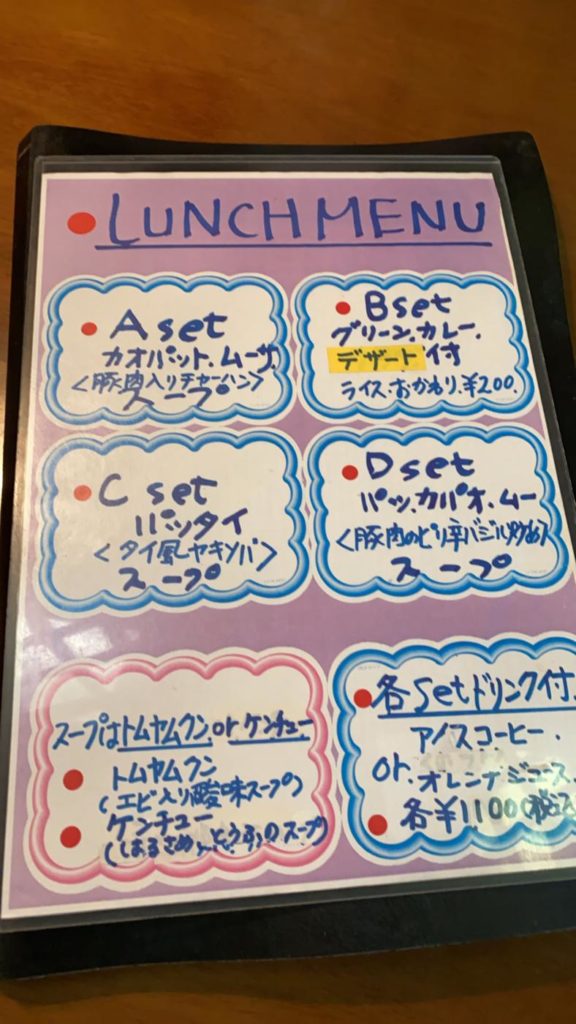 LUNCH MENU
A set
カオパット.ムーサ
<豚肉入りチャーハン>
スープ
B set
グリーン.カレー.
デザート付
ライス.おかわり.¥200.
C set
パッタイ
<タイ風ヤキソバ>
スープ
D set
パッ.カパオ.ムー
<豚肉のピリ辛バジル炒め>
スープ
スープはトムヤムクン or ケンチュー
トムヤムクン
(エビ入り酸味スープ)
ケンチュー
(はるさめ、とうふのスープ)
各setドリンク付.
アイスコーヒー.
or.オレンヂジュース.
各¥1100(税込